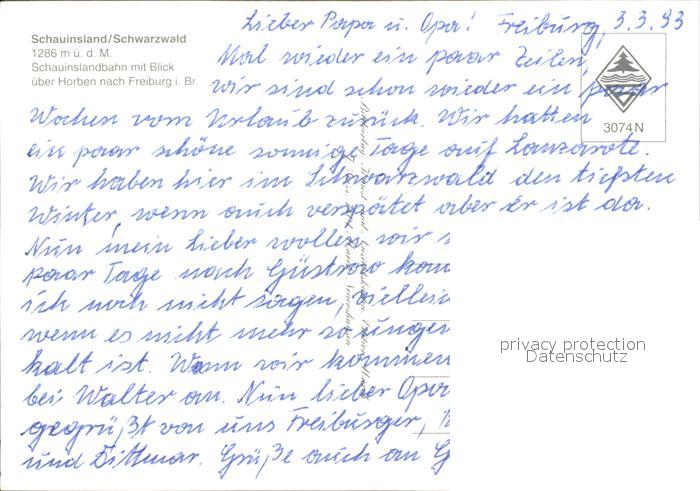 Lieber Papa u. Opa! Freiburg, 3.3.93
Schauinsland/Schwarzwald
1286 m ü. d. M.
Schauinslandbahn mit Blick
über Horben nach Freiburg i. Br.
Mal wieder ein paar Zeilen,
wir sind schon wieder ein paar
Wochen vom Urlaub zurück. Wir hatten
ein paar schöne sonnige Tage auf Lanzarote.
Wir haben hier im Schwarzwald den tiefsten
Winter, wenn auch verspätet aber Er ist da.
Nun mein Lieber wollen wir
paar Tage nach Güstrow kom
ich noch nicht sagen, viellei
wenn es nicht mehr so unge
kalt ist. Wann wir kommen
bei Walter an. Nun lieber Opa
gegrüßt von uns Freiburger,
und Dittmar. Grüße auch an G
3074N
privacy protection
Datenschutz